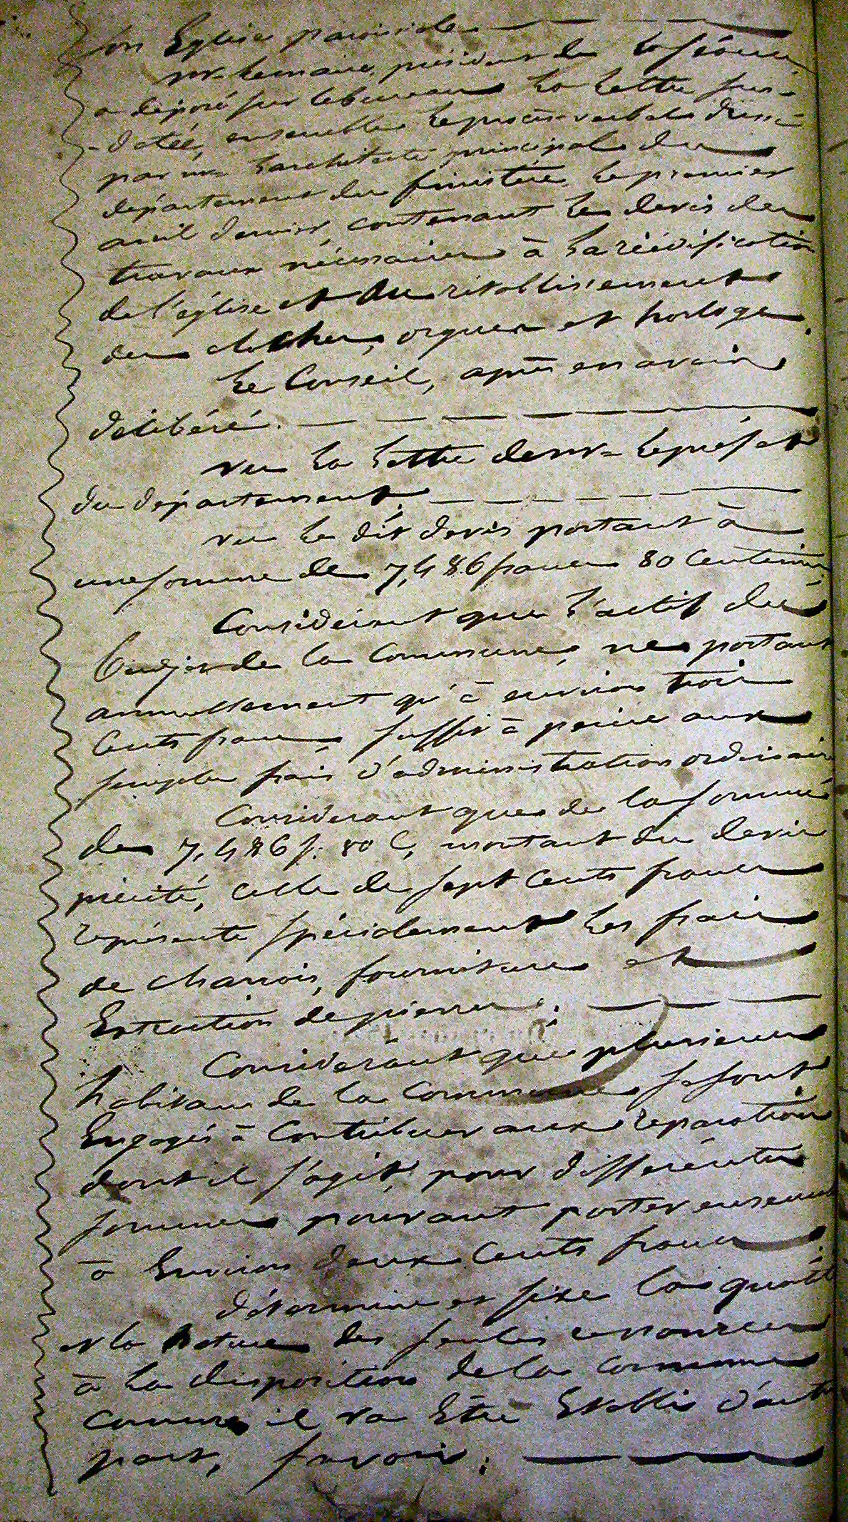 son Eglise paroissiale
mr. le maire, président de la séance
a déposé sur le bureau la lettre sus-
-datée, ensemble le procès verbal dressé
par mr. l'architecte principal du
département du finistère, le premier
avril dernier contenant le devis des
travaux nécessaires à la réédification
de l'église et du rétablissement
du clocher, orgues et horloge.
Le Conseil, après en avoir
délibéré.
vu la lettre de mr. le préfet
du département.
vu le dit devis portant à
une somme de 7,486 francs 80 centimes
Considérant que l'actif du
Budjet de la commune, ne portant
annuellement qu'à environ trois
Cents francs, suffit à peine aux
simples frais d'administration ordinaire
Considerant que de la somme
de 7,486 f. 80 C, montant du devis
précité, celle de sept cents francs
représente spécialement les frais
de charrois, fournitures et
Extraction de pierres.
Considerant que plusieurs
habitans de la Commune se sont
Engagés à Contribuer aux réparations
dont il s'agit pour différentes
sommes pouvant porter ensemble
à Environ deux Cents francs
détermine et fixe la quotité
et la Nature des seules ressources
à la disposition de la commune
comme il va Être Etabli d'autre
part, savoir: